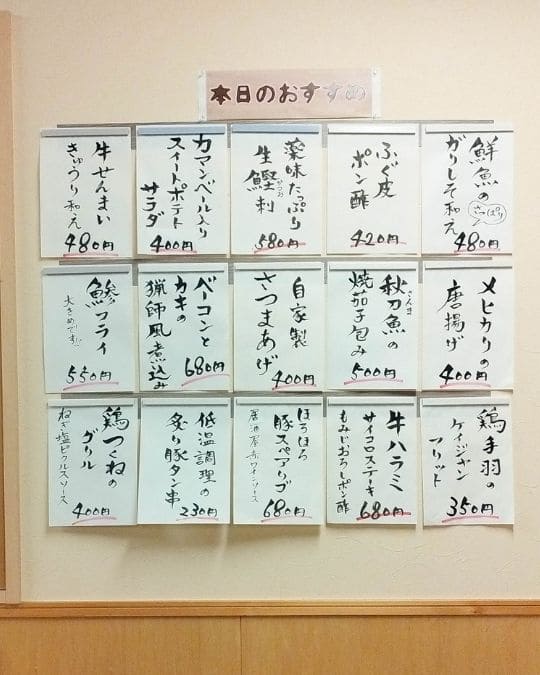 本日のおすすめ
鮮魚の
さっぱり
がりしそ和え
480円
ふぐ皮
ポン酢
420円
薬味たっぷり
生鰹刺
かつお
580円
カマンベール入り
スイートポテト
サラダ
400円
牛せんまい
きゅうり和え
480円
メヒカリの
唐揚げ
400円
秋刀魚の
さんま
焼茄子包み
500円
自家製
さつまあげ
400円
ベーコンと
カキの
猟師風煮込み
680円
鯵フライ
大きめです!
550円
鶏手羽の
ケイジャン
フリット
350円
牛ハラミ
サイコロステーキ
もみじおろしポン酢
680円
ほろほろ
豚スペアリブ
居酒屋赤ワインソース
680円
低温調理の
炙り豚タン串
230円
鶏つくねの
グリル
ねぎ塩ピクルスソース
400円